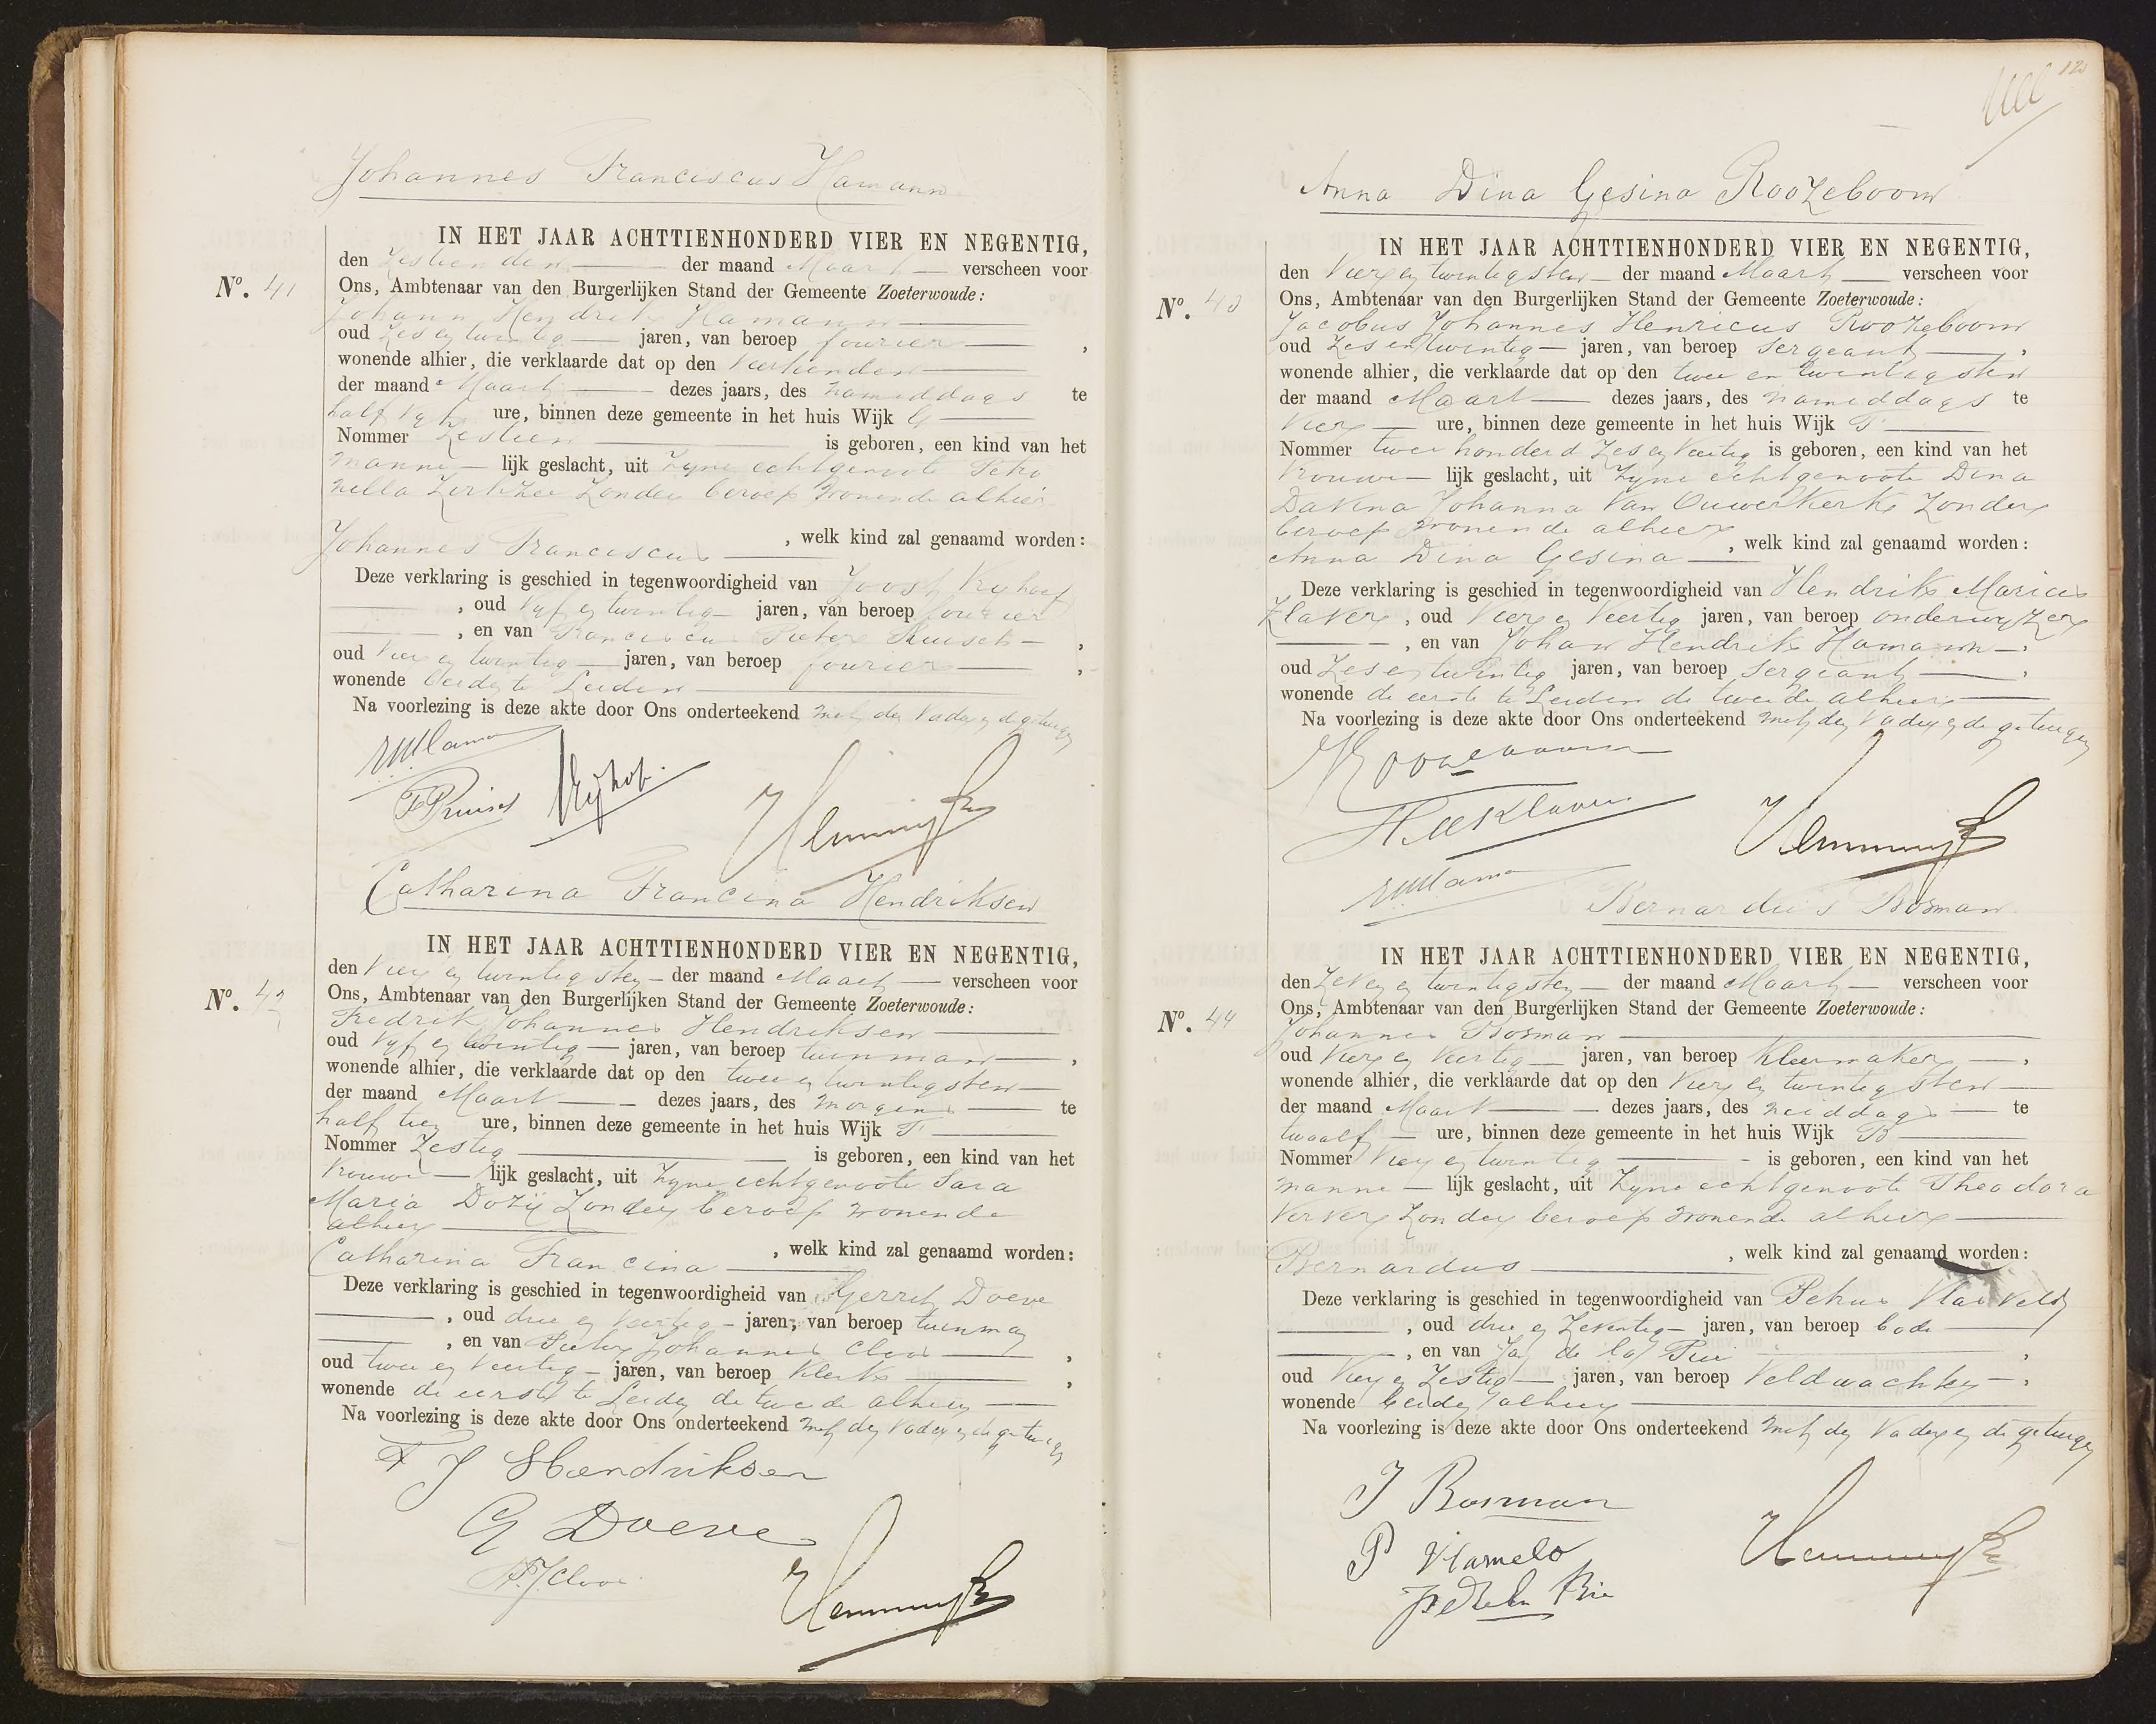 Johannes Franciscus Hamann
IN HET JAAR ACHTTIENHONDERD VIER EN NEGENTIG,
den Zestienden der maand Maart verscheen voor
No. 41
Ons, Ambtenaar van den Burgerlijken Stand der Gemeente Zoeterwoude:
Johann Hendrik Hamann
oud Zes en twintig jaren, van beroep fourier,
wonende alhier, die verklaarde dat op den Veertienden
der maand Maart dezes jaars, des namiddags te
half ure, binnen deze gemeente in het huis Wijk
Nommer Zestien is geboren, een kind van het
manne lijk geslacht, uit Zyne echtgenoote Petro
nella Zonder beroep wonende alhier
Johannes Franciscus, welk kind zal genaamd worden:
Deze verklaring is geschied in tegenwoordigheid van Joost Vryhof
, oud Vyf en twintig jaren, van beroep fourier
, en van Franciscus Pieter,
oud Vier en twintig jaren, van beroep fourier,
wonende beiden te Leiden
Na voorlezing is deze akte door Ons onderteekend met den Vader en de getuigen
Vrijhof
Catharina Francina Hendriksen
IN HET JAAR ACHTTIENHONDERD VIER EN NEGENTIG,
den Vier en twintigsten der maand Maart verscheen voor
No. 42
Ons, Ambtenaar van den Burgerlijken Stand der Gemeente Zoeterwoude:
Fredrik Johannes Hendriksen
oud Vyf en twintig jaren, van beroep tuinman,
wonende alhier, die verklaarde dat op den twee en twintigsten
der maand Maart dezes jaars, des morgens te
half tien ure, binnen deze gemeente in het huis Wijk T
Nommer Zestig is geboren, een kind van het
Vrouwe lijk geslacht, uit Zyne echtgenoote Sara
Maria Dozÿ Zonder beroep wonende
alhier
Catharina Francina, welk kind zal genaamd worden:
Deze verklaring is geschied in tegenwoordigheid van Gerrit Doeve
, oud drie en Veertig jaren, van beroep tuinman
, en van Pieter Johannes Cloos,
oud twee en Veertig jaren, van beroep Klerk,
wonende de eerste te Leiden de tweede alhier
Na voorlezing is deze akte door Ons onderteekend met den Vader en de getuigen
F J Hendriksen
G Doeve
P.J Cloos
120
Anna Dina Gesina Roozeboom
IN HET JAAR ACHTTIENHONDERD VIER EN NEGENTIG,
den Vier en twintigsten der maand Maart verscheen voor
No. 43
Ons, Ambtenaar van den Burgerlijken Stand der Gemeente Zoeterwoude:
Jacobus Johannes Henricus Roozeboom
oud Zes en twintig jaren, van beroep Sergeant,
wonende alhier, die verklaarde dat op den twee en twintigsten
der maand Maart dezes jaars, des namiddags te
Vier ure, binnen deze gemeente in het huis Wijk T
Nommer twee honderd Zes en Veertig is geboren, een kind van het
Vrouwe lijk geslacht, uit Zyne echtgenoote Dina
Davina Johanna Van Ouwerkerk Zonder
beroep wonende alhier
Anna Dina Gesina, welk kind zal genaamd worden:
Deze verklaring is geschied in tegenwoordigheid van Hendrik Marius
Klaver, oud Vier en Veertig jaren, van beroep onderwyzer
, en van Johan Hendrik Hamann,
oud Zes en twintig jaren, van beroep Sergeant,
wonende de eerste te Leiden de tweede alhier
Na voorlezing is deze akte door Ons onderteekend met den Vader en de getuigen
Bernardus Bosman
IN HET JAAR ACHTTIENHONDERD VIER EN NEGENTIG,
den Zeven en twintigsten der maand Maart verscheen voor
No. 44
Ons, Ambtenaar van den Burgerlijken Stand der Gemeente Zoeterwoude:
Johannes Bosman
oud Vier en Veertig jaren, van beroep Kleermaker,
wonende alhier, die verklaarde dat op den Vier en twintigsten
der maand Maart dezes jaars, des middags te
twaalf ure, binnen deze gemeente in het huis Wijk B
Nommer Vier en twintig is geboren, een kind van het
manne lijk geslacht, uit Zyne echtgenoote Theodora
Verver Zonder beroep wonende alhier
Bernardus, welk kind zal genaamd worden:
Deze verklaring is geschied in tegenwoordigheid van Petrus
, oud drie en Zeventig jaren, van beroep bode
, en van Jan de la Bie,
oud Vier en Zestig jaren, van beroep Veldwachter,
wonende beiden alhier
Na voorlezing is deze akte door Ons onderteekend met den Vader en de getuigen
J Bosman